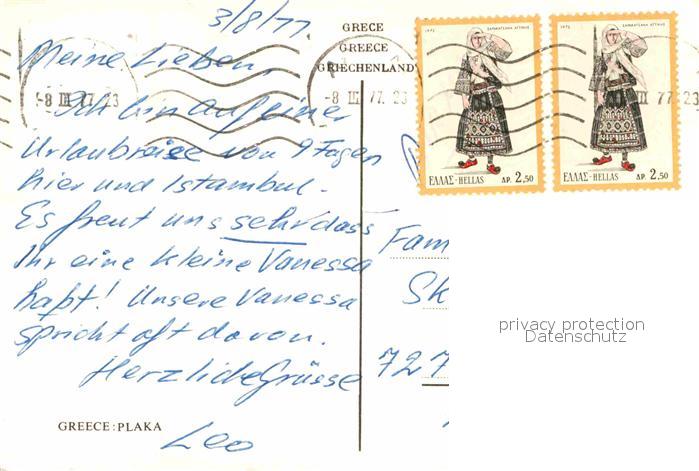 3/8/77.
GRECE
GREECE
GRIECHENLAND
Meine Lieben,
Ich bin auf einer
Urlaubreise von 9 Tagen
hier und Istambul.
Es freut uns sehr dass
Ihr eine kleine Vanessa
habt! Unsere Vanessa
spricht oft davon.
Herzliche Grüsse
Leo
GREECE: PLAKA
-8 III 77. 23
-8 III 77. 23
III 77. 23
1972
ΕΛΛΑΣ-HELLAS ΔΡ. 2,50
1972
ΕΛΛΑΣ-HELLAS ΔΡ. 2,50
Fam
Sk
727
privacy protection
Datenschutz